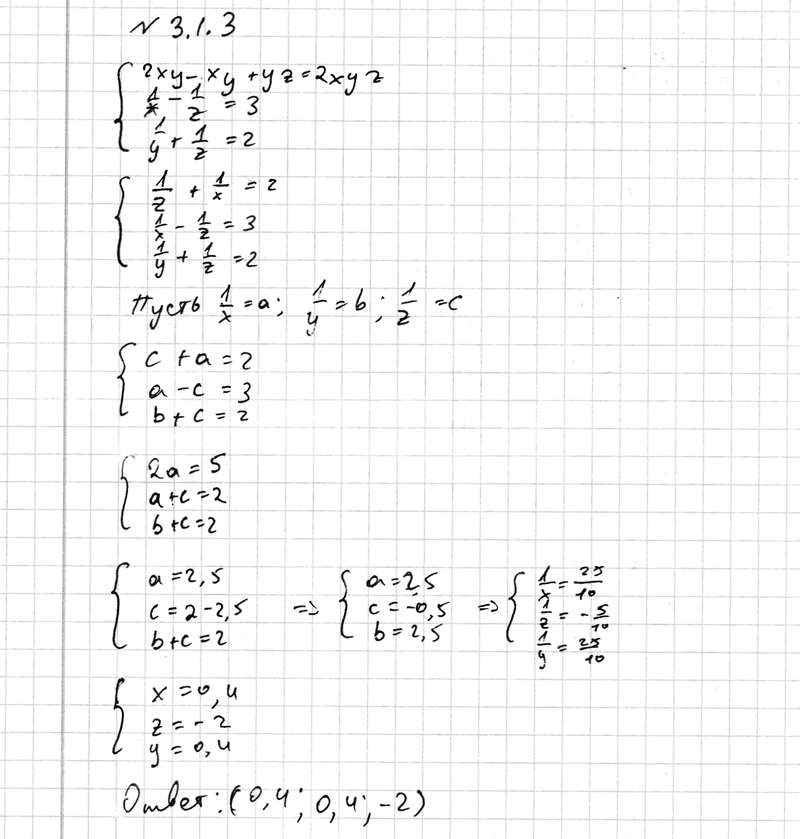 № 3.1.3
{ 2xy - xy + yz = 2xyz
1/x - 1/z = 3
1/y + 1/z = 2
{ 1/z + 1/x = 2
1/x - 1/z = 3
1/y + 1/z = 2
Пусть 1/x = a; 1/y = b; 1/z = c
{ c + a = 2
a - c = 3
b + c = 2
{ 2a = 5
a + c = 2
b + c = 2
{ a = 2,5 { a = 2,5 { 1/x = 25/10
c = 2 - 2,5 => c = -0,5 => 1/z = - 5/10
b + c = 2 b = 2,5 1/y = 25/10
{ x = 0,4
z = - 2
y = 0,4
Ответ: (0,4; 0,4; -2)